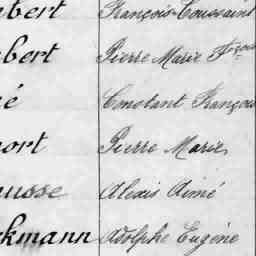 bert François Toussaint
bert Pierre Marie Fçois
é Constant François
ort Pierre Marie
usse Alexis Aimé
kmann Adolphe Eugène